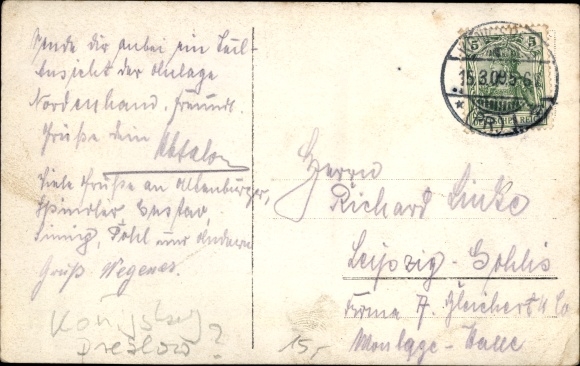 Sende dir anbei ein Teil-
Ansicht der Anlage
Nordenhand. Freundl.
Grüße dein Absalon
Viele Grüße an Altenburger,
Spindler, Gustav,
Pohl und Andern
Gruß Wegener.
Herrn
Richard Linke
Leipzig-Gohlis
Firma A. Gleichert & Co
Montage-Halle
Königsberg
Breslau?
15,-
5 5
15.3.09.5-6
(PR.) 1